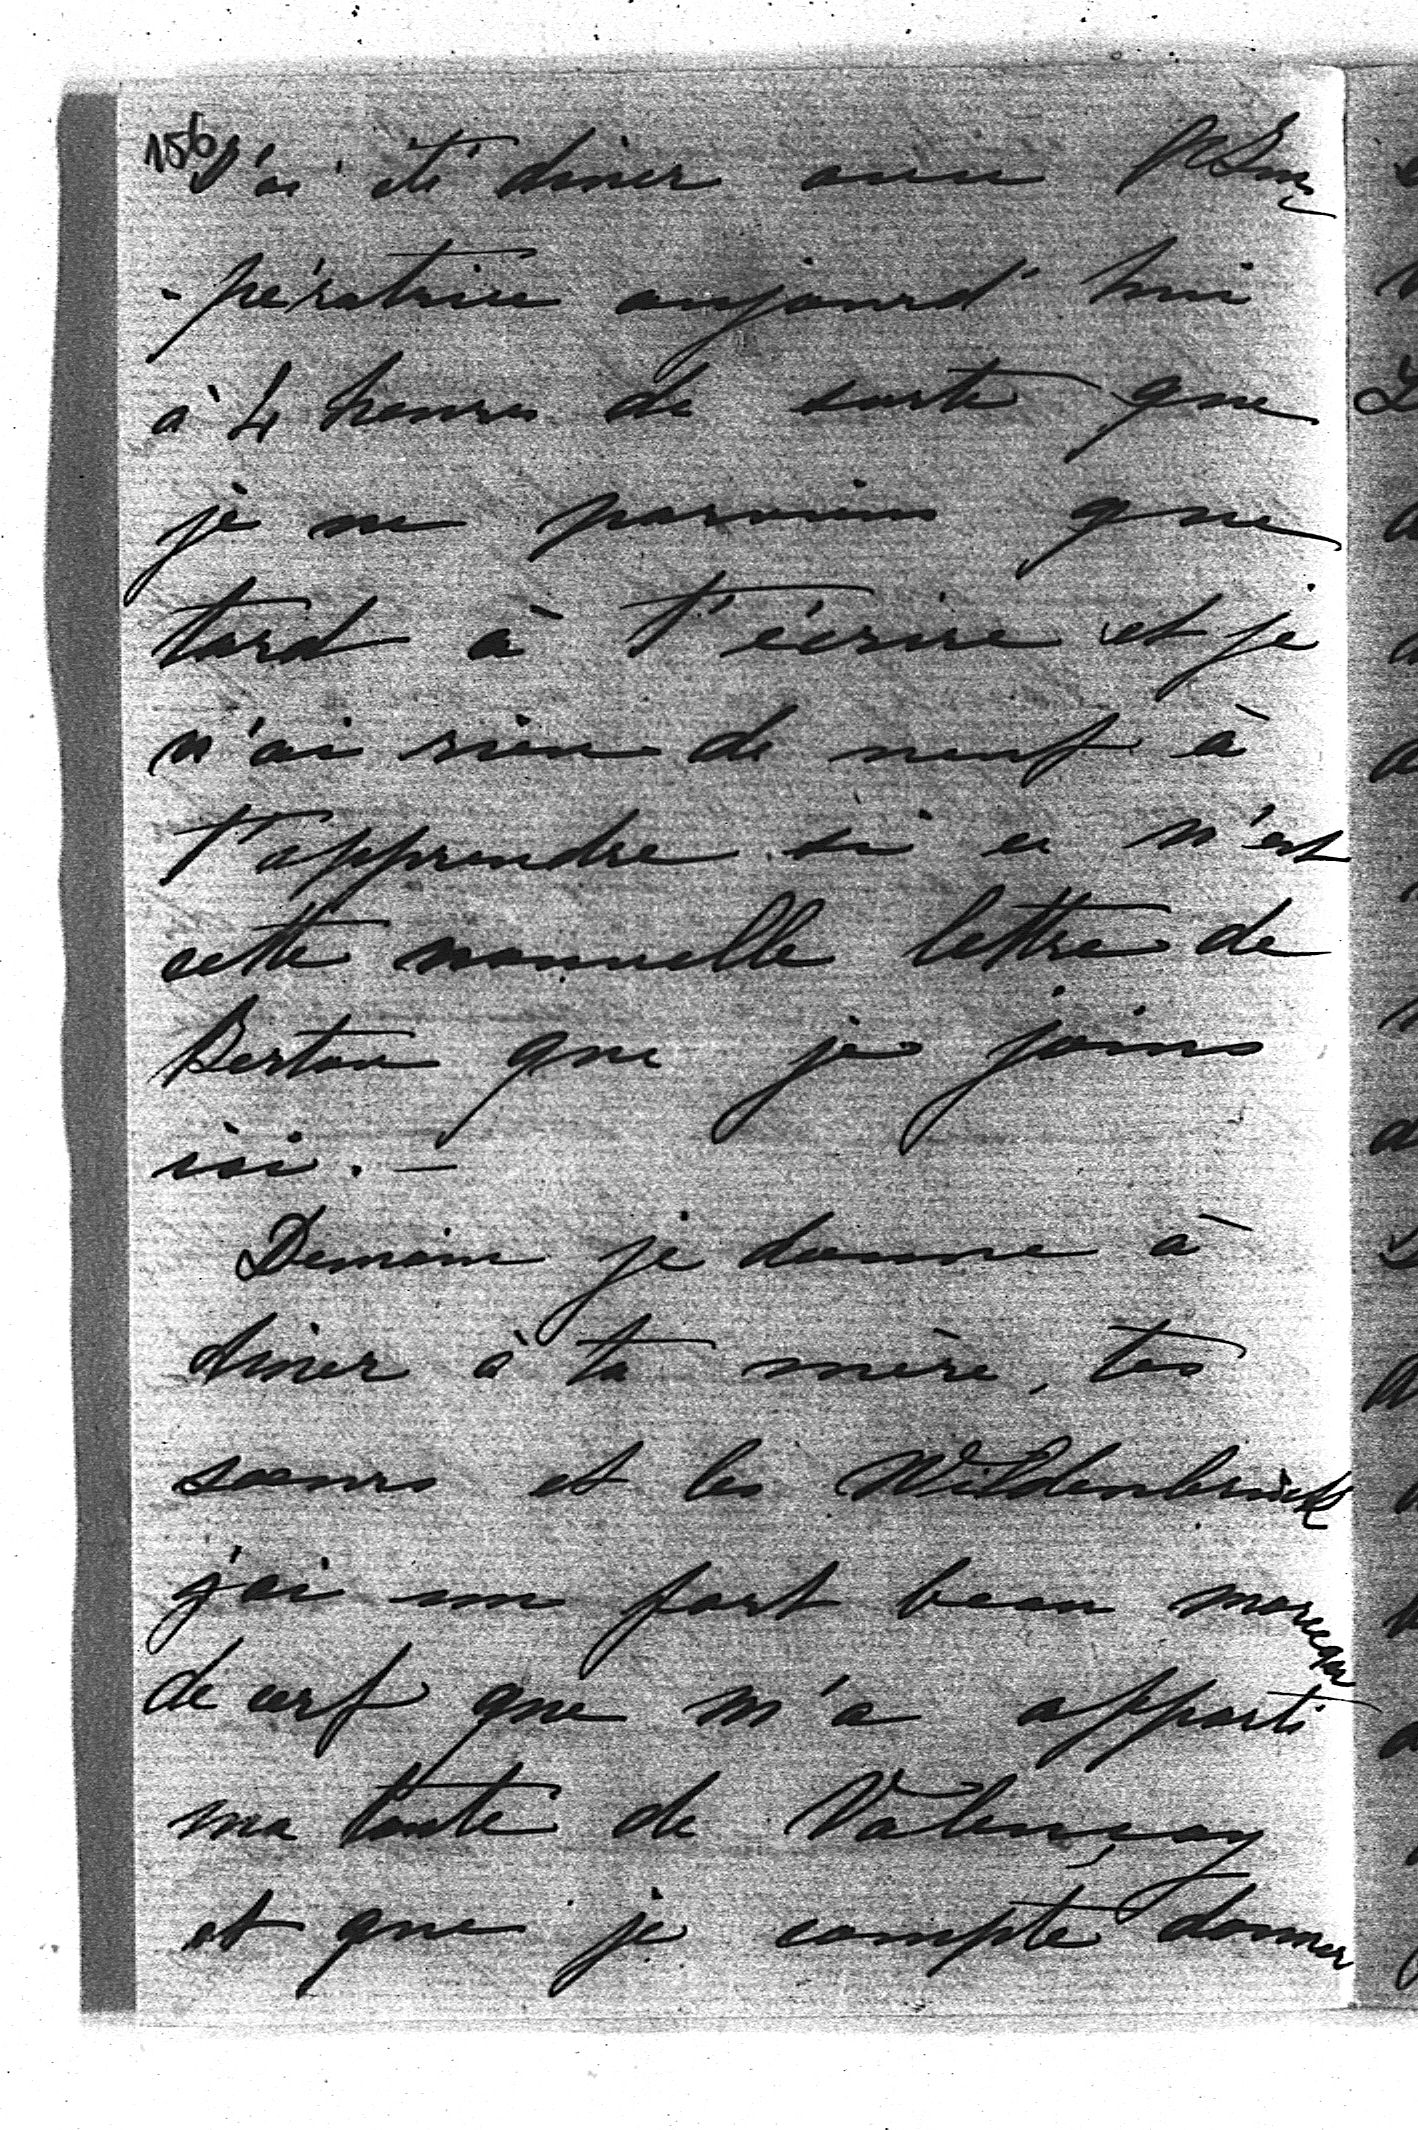 156
J'ai été diner avec l'Im
-pératrice aujourd'hui
à 4 heures de sorte que
je ne parviens que
tard à t'écrire et je
n'ai rien de neuf à
t'apprendre si ce n'est
cette nouvelle lettre de
Berton que je joins
ici. —
Demain je donne à
diner à ta mère, tes
soeurs et les Wildenbruck
j'ai un fort beau morceau
de cerf que m'a apporté
ma tante de Valençay
et que je compte donner